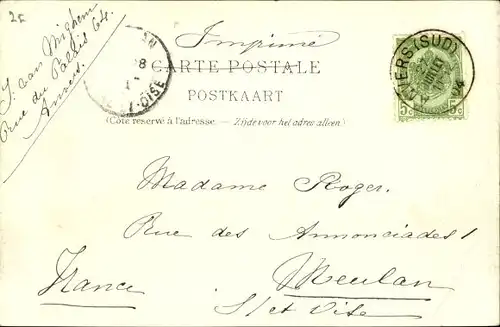 25
J. van Mighem
Rue du Palais 64.
Anvers.
Imprimé
CARTE POSTALE
POSTKAART
(Côté réservé à l'adresse. — Zijde voor het adres alleen.)
ANVERS (SUD)
JUILLET
5c 5c
OISE
Madame Roger.
Rue des Annonciades 1
Meulan
S/et Oise
France